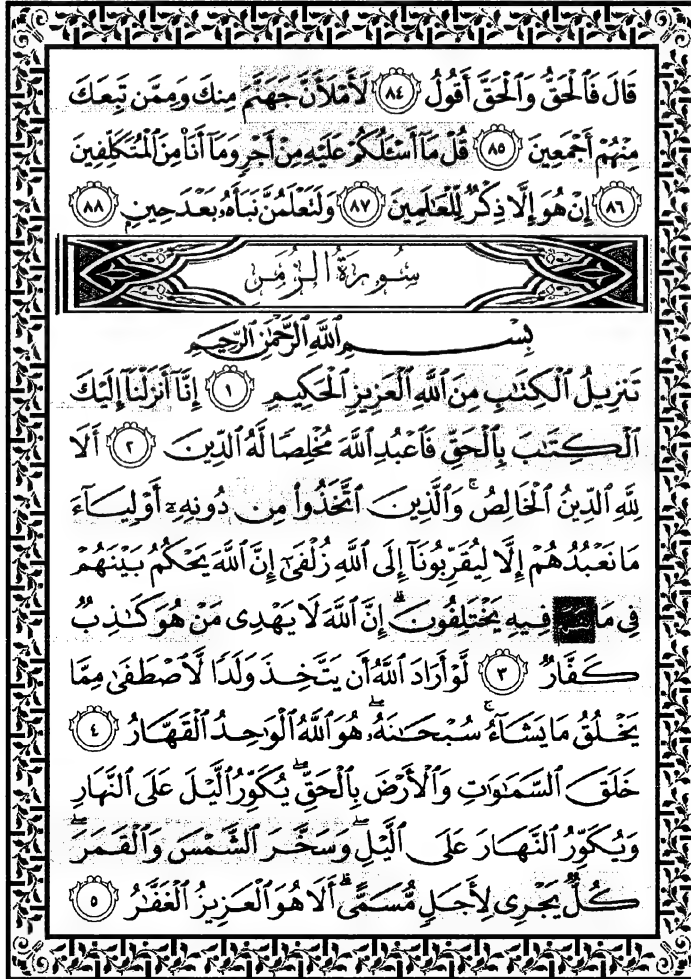 قَالَ فَٱلْحَقُّ وَٱلْحَقَّ أَقُولُ ٨٤ لَأَمْلَأَنَّ جَهَنَّمَ مِنكَ وَمِمَّن تَبِعَكَ
مِنْهُمْ أَجْمَعِينَ ٨٥ قُلْ مَآ أَسْـَٔلُكُمْ عَلَيْهِ مِنْ أَجْرٍ وَمَآ أَنَا۠ مِنَ ٱلْمُتَكَلِّفِينَ
٨٦ إِنْ هُوَ إِلَّا ذِكْرٌ لِّلْعَـٰلَمِينَ ٨٧ وَلَتَعْلَمُنَّ نَبَأَهُۥ بَعْدَ حِينٍ ٨٨
سُورَةُ الزُّمَرِ
بِسْمِ ٱللَّهِ ٱلرَّحْمَـٰنِ ٱلرَّحِيمِ
تَنزِيلُ ٱلْكِتَـٰبِ مِنَ ٱللَّهِ ٱلْعَزِيزِ ٱلْحَكِيمِ ١ إِنَّآ أَنزَلْنَآ إِلَيْكَ
ٱلْكِتَـٰبَ بِٱلْحَقِّ فَٱعْبُدِ ٱللَّهَ مُخْلِصًا لَّهُ ٱلدِّينَ ٢ أَلَا
لِلَّهِ ٱلدِّينُ ٱلْخَالِصُ ۚ وَٱلَّذِينَ ٱتَّخَذُوا۟ مِن دُونِهِۦٓ أَوْلِيَآءَ
مَا نَعْبُدُهُمْ إِلَّا لِيُقَرِّبُونَآ إِلَى ٱللَّهِ زُلْفَىٰٓ إِنَّ ٱللَّهَ يَحْكُمُ بَيْنَهُمْ
فِى مَا هُمْ فِيهِ يَخْتَلِفُونَ ۗ إِنَّ ٱللَّهَ لَا يَهْدِى مَنْ هُوَ كَـٰذِبٌ
كَفَّارٌ ٣ لَّوْ أَرَادَ ٱللَّهُ أَن يَتَّخِذَ وَلَدًا لَّٱصْطَفَىٰ مِمَّا
يَخْلُقُ مَا يَشَآءُ ۚ سُبْحَـٰنَهُۥ ۖ هُوَ ٱللَّهُ ٱلْوَٰحِدُ ٱلْقَهَّارُ ٤
خَلَقَ ٱلسَّمَـٰوَٰتِ وَٱلْأَرْضَ بِٱلْحَقِّ ۖ يُكَوِّرُ ٱلَّيْلَ عَلَى ٱلنَّهَارِ
وَيُكَوِّرُ ٱلنَّهَارَ عَلَى ٱلَّيْلِ ۖ وَسَخَّرَ ٱلشَّمْسَ وَٱلْقَمَرَ ۖ
كُلٌّ يَجْرِى لِأَجَلٍ مُّسَمًّى ۗ أَلَا هُوَ ٱلْعَزِيزُ ٱلْغَفَّـٰرُ ٥